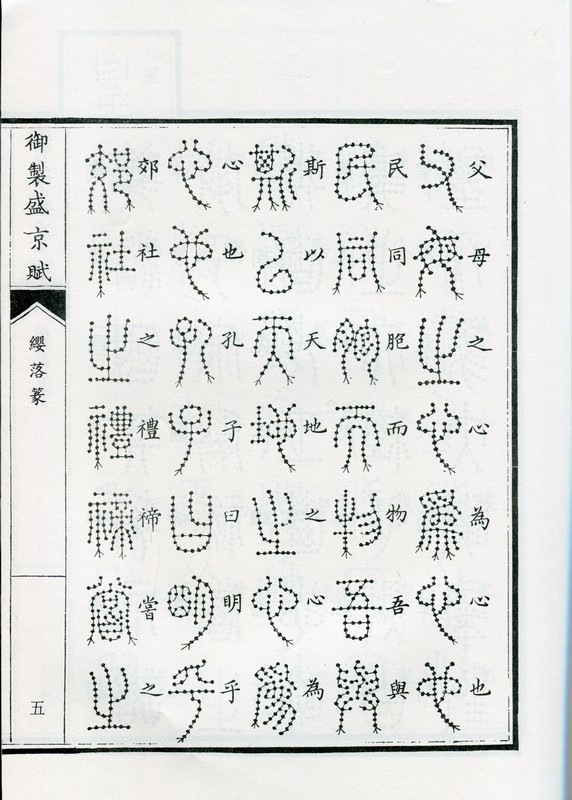 父母之心為心也
民同胞而物吾與
斯以天地之心為
心也孔子曰明乎
郊社之禮禘嘗之
御製盛京賦
纓落篆
五